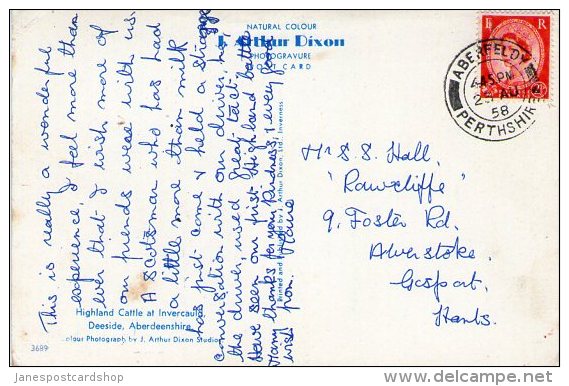 This is really a wonderful
experience, I feel more than
ever that I wish more of
our friends were with us.
A Scotsman who has had
a little more than milk
has just come & held a
conversation with our driver, he,
the driver, used great tact;
Have seen our first Highland Cattle
Many thanks for your kindness & every good
wish from
NATURAL COLOUR
J. Arthur Dixon
PHOTOGRAVURE
POST CARD
Printed and Published by J. Arthur Dixon Ltd., Inverness
E R
ABERFELDY
4.45 PM
AU
58
PERTHSHIRE
Mr S. S. Hall,
"Rawcliffe"
9, Foster Rd,
Alverstoke,
Gosport,
Hants.
Highland Cattle at Invercauld,
Deeside, Aberdeenshire.
Colour Photograph by J. Arthur Dixon Studios
3689
janespostcardshop
©www.delcampe.net